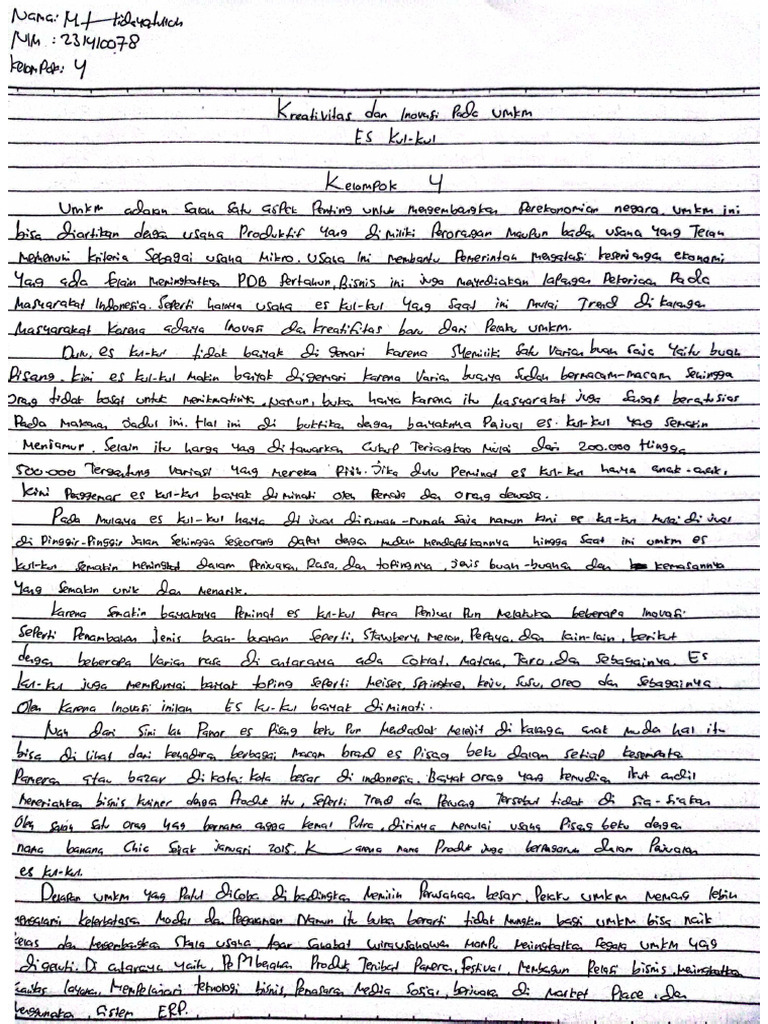 Nama: M. Hidayatulah
NIM : 231410078
Kelompok: 4
Kreativitas dan Inovasi Pada UMKM
ES KUL-KUL
Kelompok 4
UMKM adalah Salah Satu aspek Penting untuk mengembangkan Perekonomian negara. UMKM ini
bisa diartikan dengan usaha Produktif yang dimiliki Perorangan Maupun badan usaha yang Telah
memenuhi kriteria Sebagai usaha Mikro. usaha Ini membantu Pemerintah mengatasi kesenjangan ekonomi
Yang ada selain meningkatkan PDB Pertahun, Bisnis ini juga menyediakan lapangan Pekerjaan Pada
Masyarakat Indonesia. Seperti halnya usaha es kul-kul Yang Saat ini Mulai Trend di kalangan
Masyarakat Karena adanya Inovasi dan kreatifitas baru dari Pelaku UMKM.
Dulu, es kul-kul tidak banyak di gemari karena Memiliki Satu Varian buah Saja Yaitu buah
Pisang. kini es kul-kul Makin banyak digemari karena Varian buahnya Sudah bermacam-macam Sehingga
orang tidak bosan untuk menikmatinya. Namun, bukan hanya karena itu Masyarakat juga Sangat berantusias
Pada Makanan Jadul ini. Hal ini di buktikan dengan banyaknya Penjual es kul-kul yang Semakin
Menjamur. Selain itu harga yang ditawarkan Cukup Terjangkau Mulai dari 200.000 Hingga
500.000 Tergantung Variasi yang mereka Pilih. Jika dulu Peminat es kul-kul hanya anak-anak,
kini Penggemar es kul-kul banyak diminati oleh Remaja dan orang dewasa.
Pada Mulanya es kul-kul hanya di jual dirumah-rumah Saja namun kini es kul-kul mulai di jual
di Pinggir-Pinggir Jalan Sehingga Seseorang Dapat dengan mudah Mendapatkannya hingga Saat ini UMKM es
kul-kul Semakin Meningkat dalam Penjualan, Rasa, dan topingnya, Jenis buah-buahan dan kemasannya
Yang Semakin unik dan Menarik.
Karena Semakin banyaknya Peminat es kul-kul Para Penjual Pun Melakukan beberapa Inovasi
Seperti Penambahan Jenis buah-buahan Seperti, Stawbery, Melon, Pepaya, dan lain-lain, berikut
dengan beberapa Varian rasa di antaranya ada Coklat, Matcha, Taro, dan Sebagainya. Es
kul-kul juga mempunyai banyak toping Seperti Meises, Springkle, keju, Susu, Oreo dan Sebagainya.
Oleh karena Inovasi inilah Es ku-kul banyak diminati.
Nah dari Sini lah Pamor es Pisang beku Pun Mendadak Melejit di kalangan anak muda hal itu
bisa di lihat dari kehadiran berbagai Macam brand es Pisang beku dalam setiap kesempatan
Pameran atau bazar di kota-kota besar di Indonesia. Banyak orang yang kemudian Ikut andil
meneriahkan bisnis kuliner dengan Produk itu, Seperti Trend dan Peluang Tersebut tidak di Sia-Siakan
Oleh Salah Satu orang Yag bernama angga kemal Putra, dirinya memulai usaha Pisang beku dengan
nama banana Chic Sejak Januari 2015. Karena nama Produk juga berpengaruh dalam Penjualan
es kul-kul.
Delapan UMKM yang Patut dicoba dibandingkan Memilih Perusahaan besar. Pelaku UMKM memang lebih
mengalami keterbatasan Modal dan Pegawai Namun itu bukan berarti tidak Mungkin bagi UMKM bisa naik
kelas dan kembangkan Skala usaha, Agar Sahabat wirausahawan Mampu Meningkatkan Segara UMKM Yag
digeluti. Di antaranya Yaitu, Produk, Terlibat Pameran, Festival, Membagun Relasi bisnis, Meingkatkan
kualitas layanan, Mempelajari teknologi bisnis, Pemasaran Media Sosial, berjualan di Market Place, dan
menggunakan Sistem ERP.